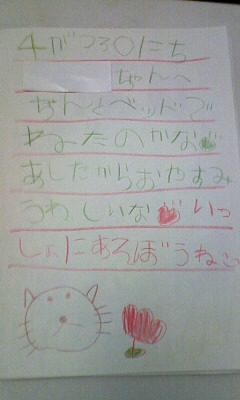 4がつ30にち
ちゃんへ
ちゃんとベッドで
ねたのかな
あしたからおやすみ
うれしいな いっ
しょにあそぼうね